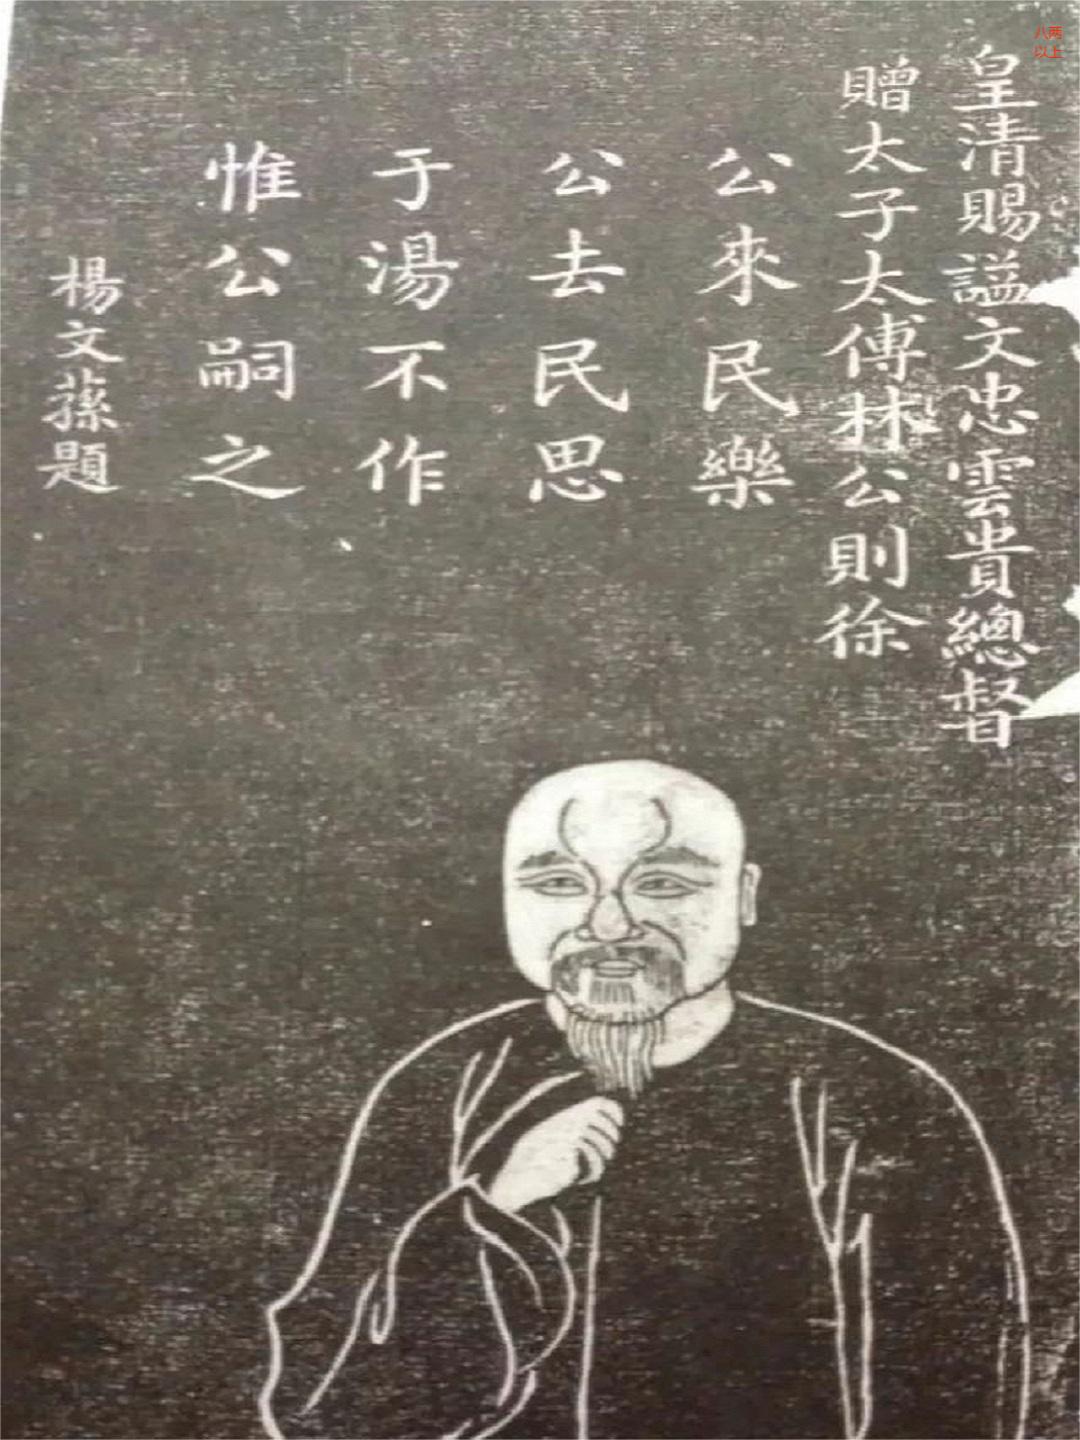 皇清賜謚文忠雲貴總督
贈太子太傅林公則徐
公來民樂
公去民思
于湯不作
惟公嗣之
楊文蓀題
八两
以上